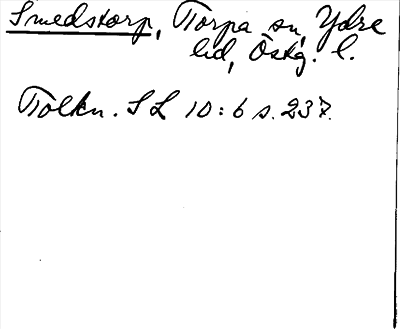 Smedstorp, Torpa sn, Ydre
hd, Östg. l.
Tolkn. SL 10:6 s. 237.